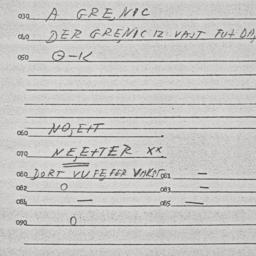 030 A GRE,NIC
040 DER GRE,NIC IZ VAJT
050 O-K
060 NO,E+T
070 NE,E+TER XX
080 DORT VU FEFER 081 —
082 O 083 —
084 — 085 —
090 O